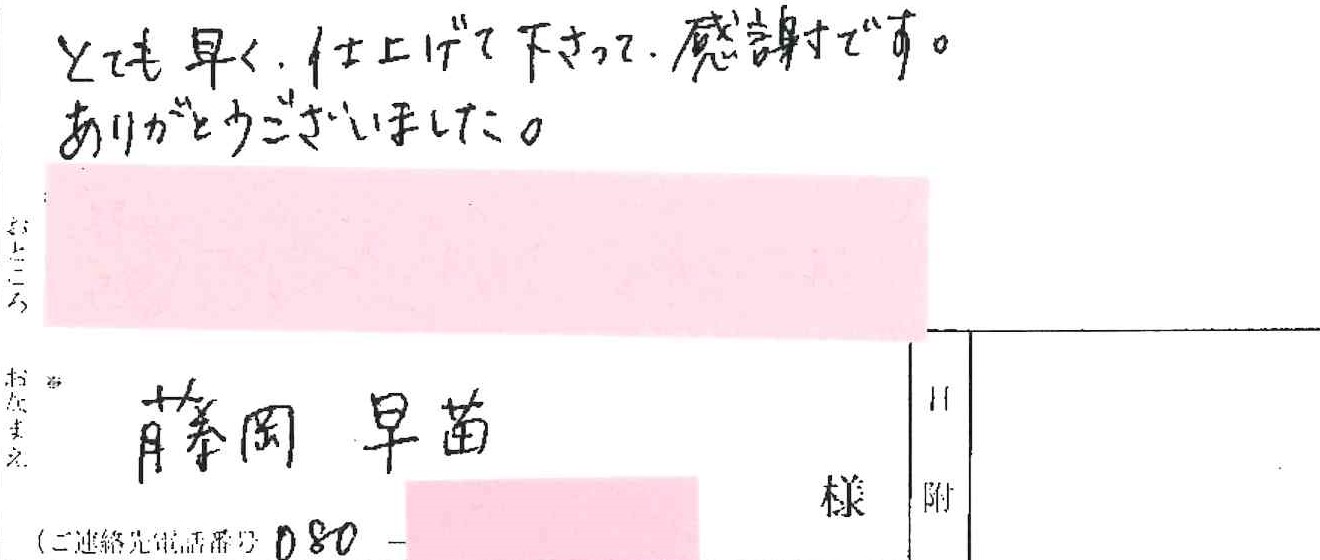 とても早く、仕上げて下さって、感謝です。
ありがとうございました。
おところ
おなまえ
※
藤岡 早苗
様
日附
(ご連絡先電話番号 080 -